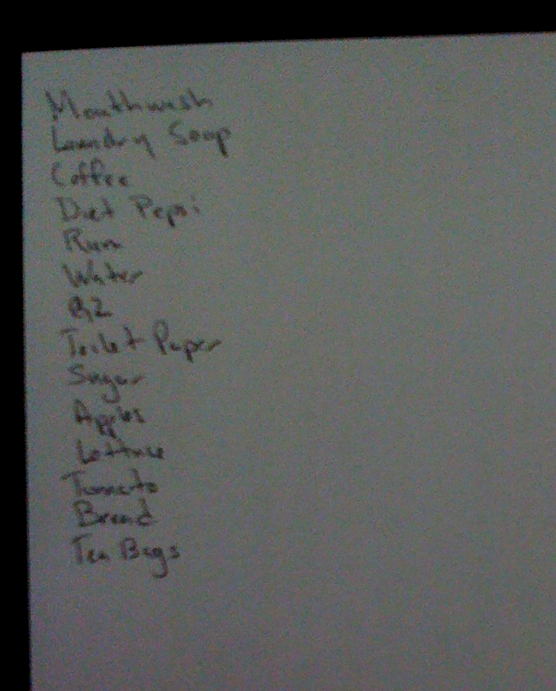 Mouthwash
Laundry Soap
Coffee
Diet Pepsi
Rum
Water
B2
Toilet Paper
Sugar
Apples
Lettuce
Tomato
Bread
Tea Bags